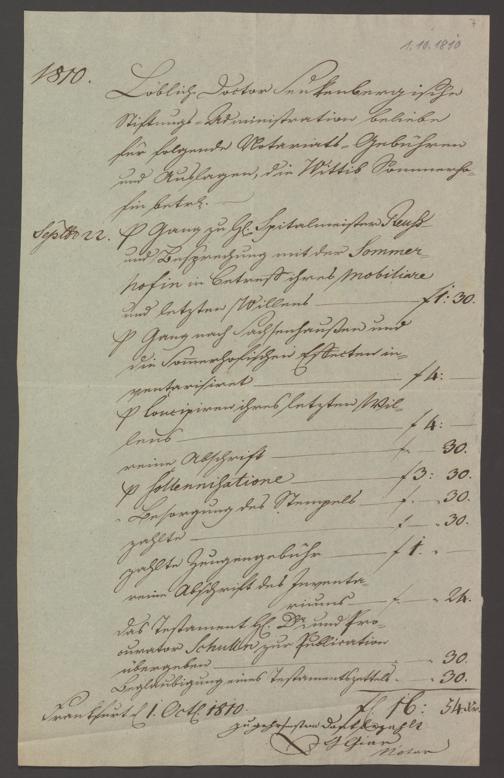 1.10.1810
1810.
Löblich Doctor Senkenbergische
Stiftungs-Administration beliebe
für folgende Notariats-Gebühren
und Auslagen, die Wittib Sommerho-
fin betrf.
Septbr 22. P Gang zu H. Spitalmeister Reuß
und Besprechung mit der Sommer-
hofin in Betreff ihres Mobiliars
und letzten Willens f 1: 30.
P Gang nach Sachsenhausen und
die Sommerhofischen Effecten in-
ventarisiret f 4:
P Concipiren ihres letzten Wil-
lens f 4:
reine Abschrift f - 30.
P Sollennisatione f 3: 30.
Besorgung des Stempels f - 30.
zahlte f - 30.
zahlte Zeugengebühr f 1. -
reine Abschrift des Inventa-
riums f - 24.
das Testament H. Dr. und Pro-
curator Schulin zur Publication
übergeben - 30.
Beglaubigung eines Testamentszettels - 30.
f 16: 54 Xr.
Frankfurt d 1. Octb. 1810.
zu gehorsamsten Dank bezahlt
Notar